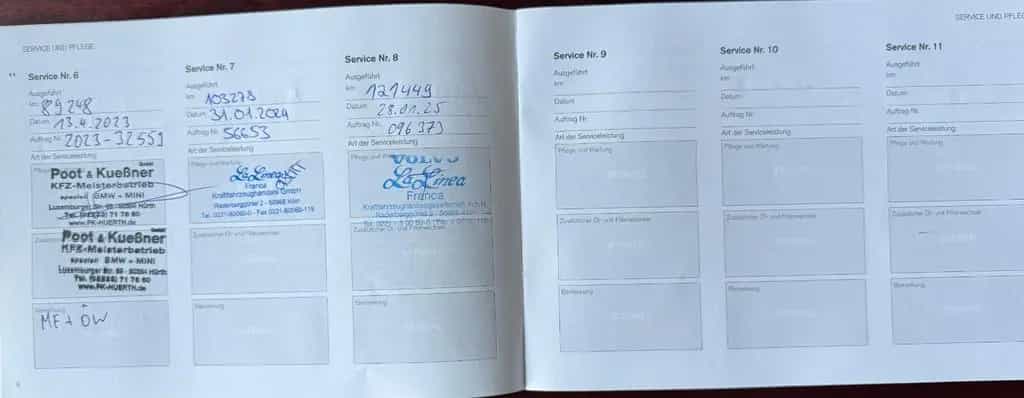 SERVICE UND PFLEGE
Service Nr. 6
Ausgeführt
km: 89248
Datum: 13.4.2023
Auftrag Nr. 2023-32551
Art der Serviceleistung
Poot & Kueßner GmbH
KFZ-Meisterbetrieb
speziell BMW + MINI
Luxemburger Str. 89 - 50354 Hürth
Tel. (02233) 71 76 60
www.PK-HUERTH.de
Poot & Kueßner GmbH
KFZ-Meisterbetrieb
speziell BMW + MINI
Luxemburger Str. 89 - 50354 Hürth
Tel. (02233) 71 76 60
www.PK-HUERTH.de
MF + ÖW
Service Nr. 7
Ausgeführt
km: 103278
Datum: 31.01.2024
Auftrag Nr. 56653
Art der Serviceleistung
Pflege und Wartung
La Linea
Franca
Kraftfahrzeughandels GmbH
Zusätzlicher Öl- und Filterwechsel
Bemerkung
Service Nr. 8
Ausgeführt
km: 121449
Datum: 28.01.25
Auftrag Nr. 096373
Art der Serviceleistung
Pflege und Wartung
VOLVO
La Linea
Franca
Zusätzlicher Öl- und Filterwechsel
Bemerkung
Service Nr. 9
Ausgeführt
km:
Datum:
Auftrag Nr.
Art der Serviceleistung
Pflege und Wartung
Zusätzlicher Öl- und Filterwechsel
Bemerkung
SERVICE UND PFLEGE
Service Nr. 10
Ausgeführt
km:
Datum:
Auftrag Nr.
Art der Serviceleistung
Pflege und Wartung
Zusätzlicher Öl- und Filterwechsel
Bemerkung
Service Nr. 11
Ausgeführt
km:
Datum:
Auftrag Nr.
Art der Serviceleistung
Pflege und Wartung
Zusätzlicher Öl- und Filterwechsel
Bemerkung